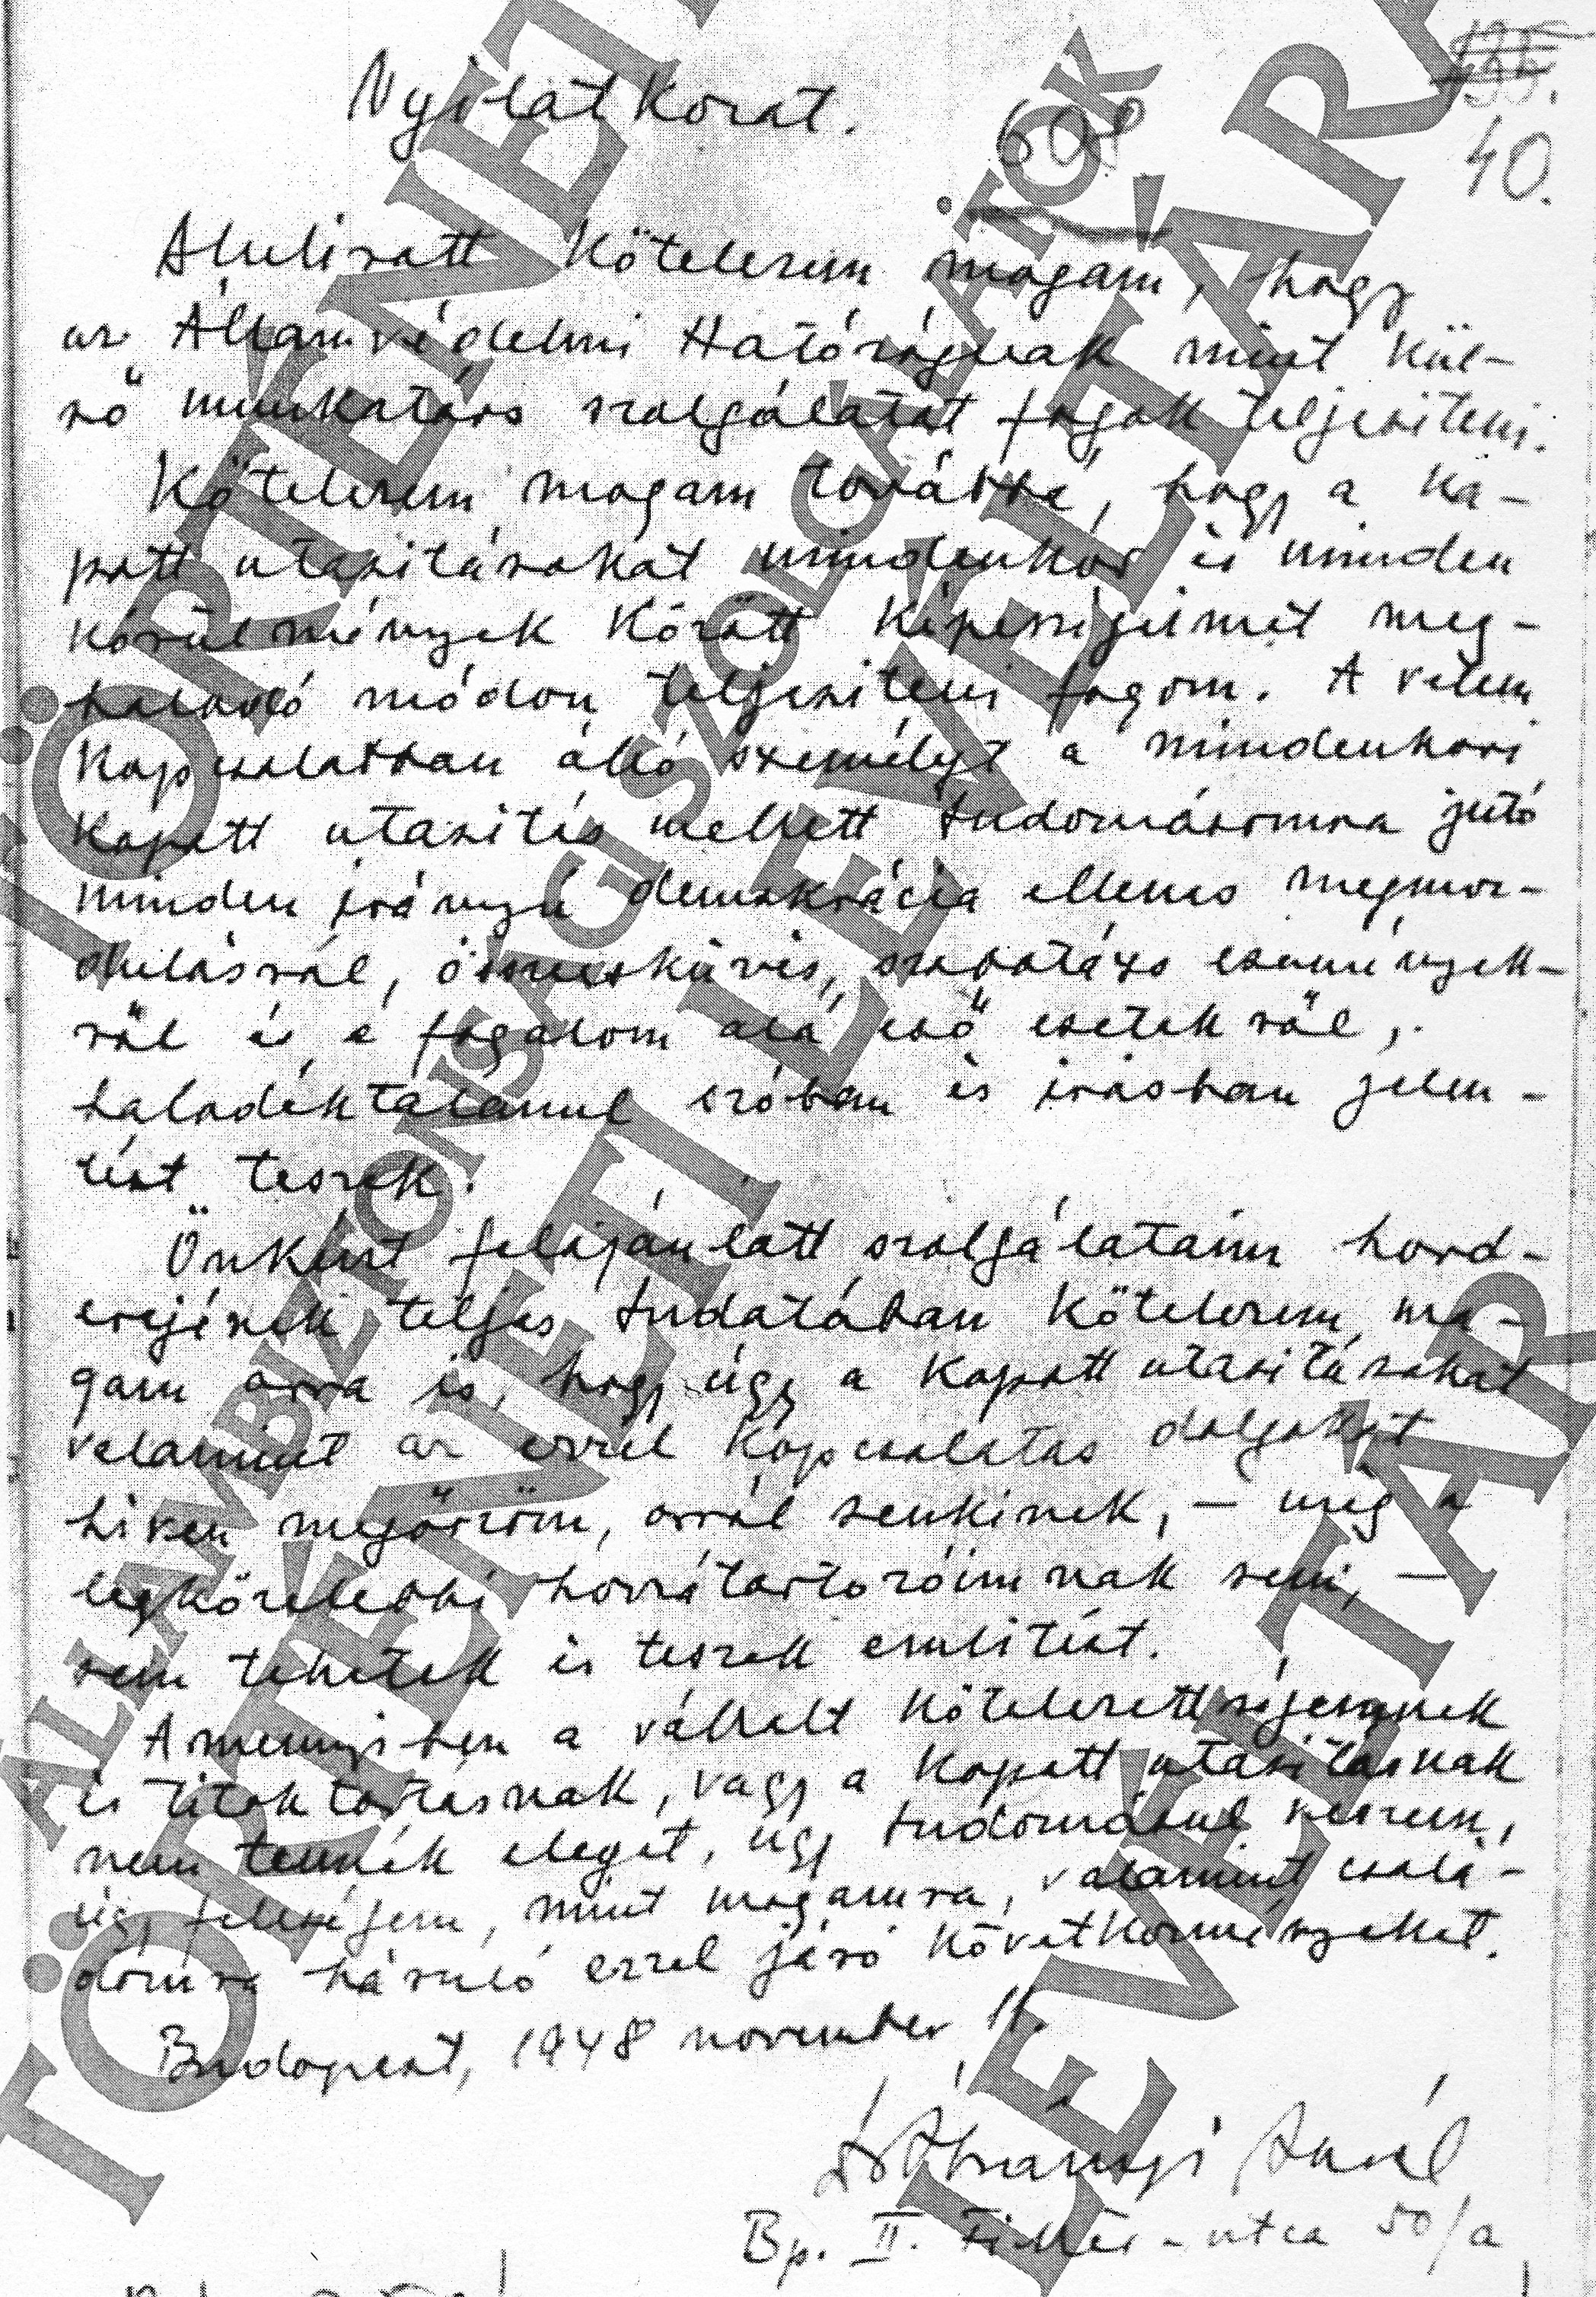 Nyilatkozat.
135.
40.
Alulirott kötelezem magam, hogy
az Államvédelmi Hatóságnak mint kül-
ső munkatárs szolgálatot fogok teljesiteni.
Kötelezem magam továbbá, hogy a ka-
pott utasitásokat mindenkor és minden
körülmények között képességeimet meg-
haladó módon teljesiteni fogom. A velem
kapcsolatban álló személyt a mindenkori
kapott utasitás mellett tudomásomra jutó
minden irányú demokrácia ellenes megmoz-
dulásról, összeesküvés, szabotázs események-
ről és e fogalom alá eső esetekről,
haladéktalanul szóban és irásban jelen-
tést teszek.
Önként felajánlott szolgálataim hord-
erejének teljes tudatában kötelezem ma-
gam arra is, hogy úgy a kapott utasitásokat
valamint az ezzel kapcsolatos dolgokat
hiven megőrzöm, arról senkinek, – még a
legközelebbi hozzátartozóimnak sem, –
sem tehetek és teszek emlitést.
Amennyiben a vállalt kötelezettségemnek
és titoktartásnak, vagy a kapott utasitásnak
nem tennék eleget, úgy tudomásul veszem,
úgy felségem, mint magamra, valamint csalá-
domra háruló ezzel járó következményeket.
Budapest, 1948 november 11.
Ábrányi Aurél
Bp. II. Fillér-utca 50/a
ÁLLAMBIZTONSÁGI SZOLGÁLATOK
TÖRTÉNETI LEVÉLTÁRA